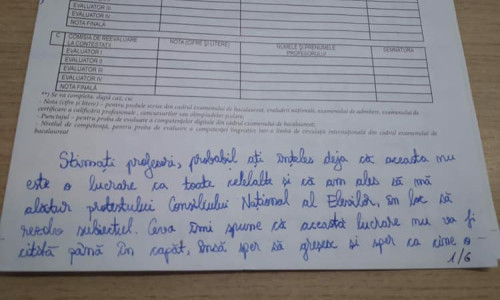 EVALUATOR III
EVALUATOR IV
NOTA FINALĂ
C COMISIA DE REEVALUARE NOTA (CIFRE ȘI LITERE) NUMELE ȘI PRENUMELE SEMNĂTURA
LA CONTESTAȚII PROFESORULUI
EVALUATOR I
EVALUATOR II
EVALUATOR III
EVALUATOR IV
NOTA FINALĂ
**) Se va completa, după caz, cu:
- Nota (cifre și litere) - pentru probele scrise din cadrul examenului de bacalaureat, evaluării naționale, examenului de admitere, examenului de
certificare a calificării profesionale, concursurilor sau olimpiadelor școlare.
- Punctajul - pentru proba de evaluare a competențelor digitale din cadrul examenului de bacalaureat.
- Nivelul de competență, pentru proba de evaluare a competenței lingvistice într-o limbă de circulație internațională din cadrul examenului de
bacalaureat
Stimați profesori, probabil ați înțeles deja că aceasta nu
este o lucrare ca toate celelalte și că am ales să mă
alătur protestului Consiliului Național al Elevilor, în loc să
rezolv subiectul. Ceva îmi spune că această lucrare nu va fi
citită până în capăt, însă sper să greșesc și sper ca cine o
1/6